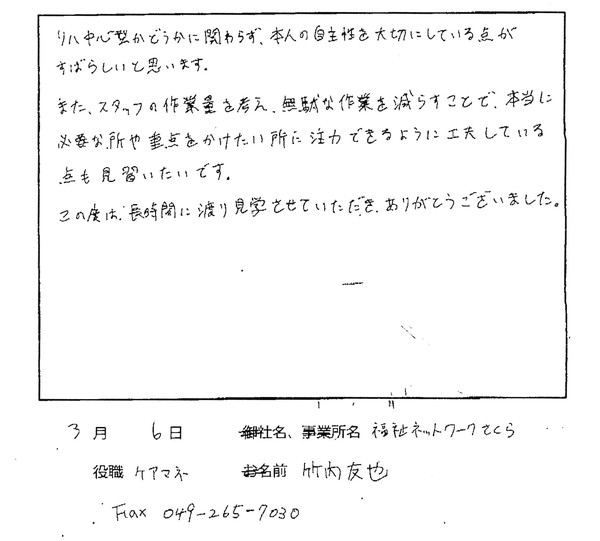 リハ中心型かどうかに関わらず、本人の自主性を大切にしている点が
すばらしいと思います。
また、スタッフの作業量を考え、無駄な作業を減らすことで、本当に
必要な所や重点をかけたい所に注力できるように工夫している
点も見習いたいです。
この度は、長時間に渡り見学させていただき、ありがとうございました。
3月 6日 御社名、事業所名 福祉ネットワークさくら
役職 ケアマネ お名前 竹内友也
Fax 049-265-7030